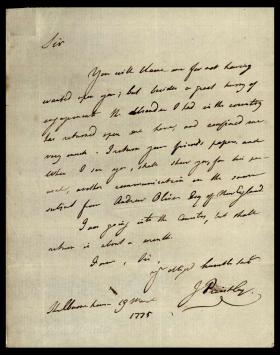 Sir
You will blame me for not having
waited upon you; but besides a great hurry of
engagements the disorder I had in the country
has returned upon me here, and confined me
very much. I return your friend's papers, and
when I see you, shall shew you, for his
another communication on the same
subject from Andrew Oliver Esq of New England
I am going into the Country, but shall
return in about a month.
I am, Sir,
your obliged humble serv
J Priestley.
Shelburne house 19 March
1775